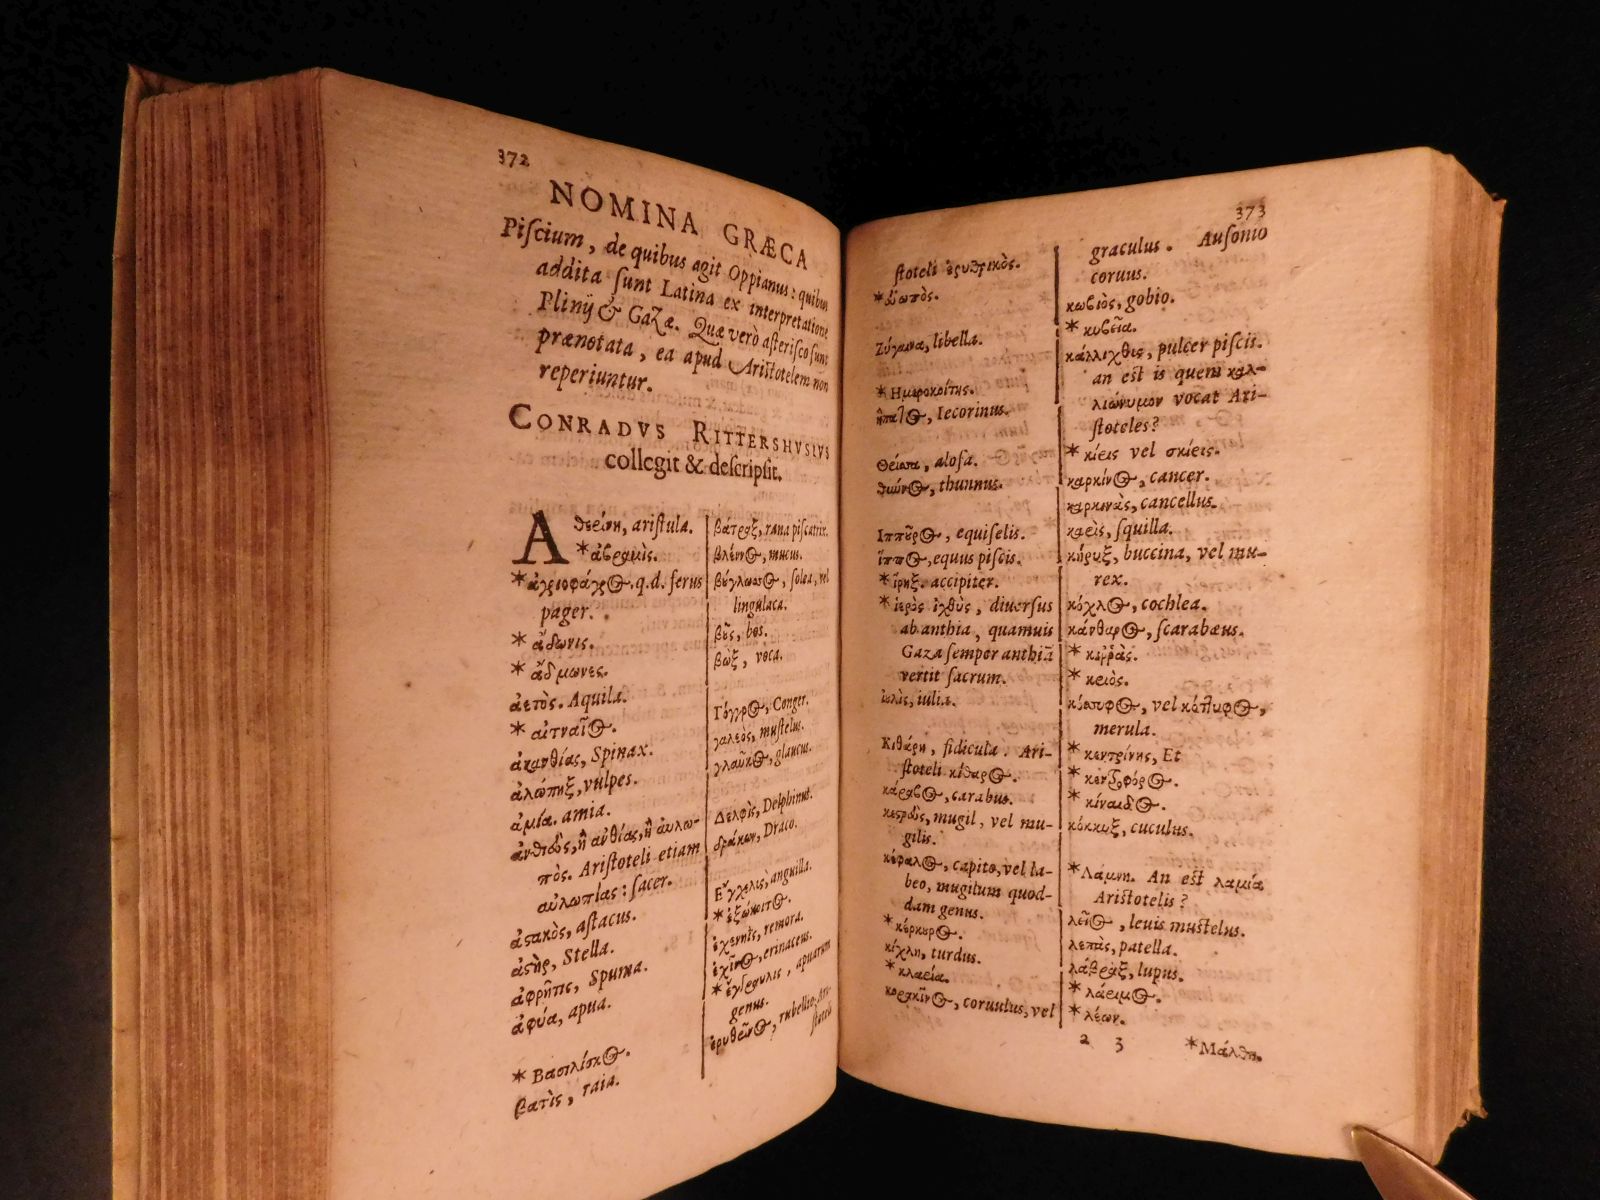 372
NOMINA GRÆCA
Piſcium, de quibus agit Oppianus: quibus
addita ſunt Latina ex interpretatione
Plinij & Gazæ. Quæ verò aſteriſco ſunt
prænotata, ea apud Ariſtotelem non
reperiuntur.
CONRADVS RITTERSHVSIVS
collegit & deſcripſit.
Aθείνη, ariſtula.
*ἀβραμὶς.
*ἀγριοφάγρος, q.d. ferus
pager.
* ἄδωνις.
* ἄδμωνες.
ἀετὸς. Aquila.
* αἰτναῖος.
ἀκανθίας, Spinax.
ἀλώπηξ, vulpes.
ἀμία. amia.
ἀνθιὸς, ἢ ἀνθίας, ἢ αὐλω-
πὸς. Ariſtoteli etiam
αὐλωπίας: ſacer.
ἀςακὸς, aſtacus.
ἀςὴρ, Stella.
ἀφρῆτις, Spuma.
ἀφύα, apua.
* Βασιλίσκος.
βατὶς, raia.
βάτραξ, rana piſcatrix.
βλέννος, mucus.
βύγλωσσος, ſolea, vel
lingulaca.
βοῦς, bos.
βὼξ, voca.
Γόγγρος, Conger.
γαλεὸς, muſtelus.
γλαῦκος, glaucus.
Δελφὶς, Delphinus.
δράκων, Draco.
Εγχελις, anguilla.
*ἐξώκοιτος.
ἐχενηῒς, remora.
ἐχῖνος, erinaceus.
* ἐγγραυλις, apuarum
genus.
ἐρυθῖνος, rubellio, Ari-
ſtoteli
373
ſtoteli ἐρυθρικὸς.
Ζύγαινα, libella.
* Ημεροκοίτης.
ἥπατος, Iecorinus.
Θείσσα, aloſa.
θύννος, thunnus.
Ιππουρος, equiſelis.
ἵππος, equus piſcis.
* ἵρηξ. accipiter.
* ἱερὸς ἰχθὺς, diuerſus
ab anthia, quamuis
Gaza ſemper anthiā
vertit ſacrum.
ἰουλὶς, iulis.
Κιθάρη, fidicula. Ari-
ſtoteli κίθαρος.
κάραβος, carabus.
κεστρεὺς, mugil, vel mu-
gilis.
κέφαλος, capito, vel la-
beo, mugilum quod-
dam genus.
* κέρκουρος.
κίχλη, turdus.
* κλαρία.
κορακῖνος, coruulus, vel
graculus. Auſonio
coruus.
κωβιὸς, gobio.
* κυβεῖα.
κάλλιχθις, pulcer piſcis.
an eſt is quem καλ-
λιώνυμον vocat Ari-
ſtoteles?
* κίρις vel σκίρις.
καρκίνος, cancer.
καρκινὰς, cancellus.
καρὶς, ſquilla.
κήρυξ, buccina, vel mu-
rex.
κόχλος, cochlea.
κάνθαρος, ſcarabæus.
* κιρρὰς.
* κριὸς.
κόσσυφος, vel κόττυφος,
merula.
* κεντρίνης, Et
* κεντροφόρος.
* κίναιδος.
κόκκυξ, cuculus.
*Λάμνη. An eſt λαμία
Ariſtotelis?
λεῖος, leuis muſtelus.
λεπὰς, patella.
λάβραξ, lupus.
* λάριμος.
* λέων.
2 3
*Μάλθη.